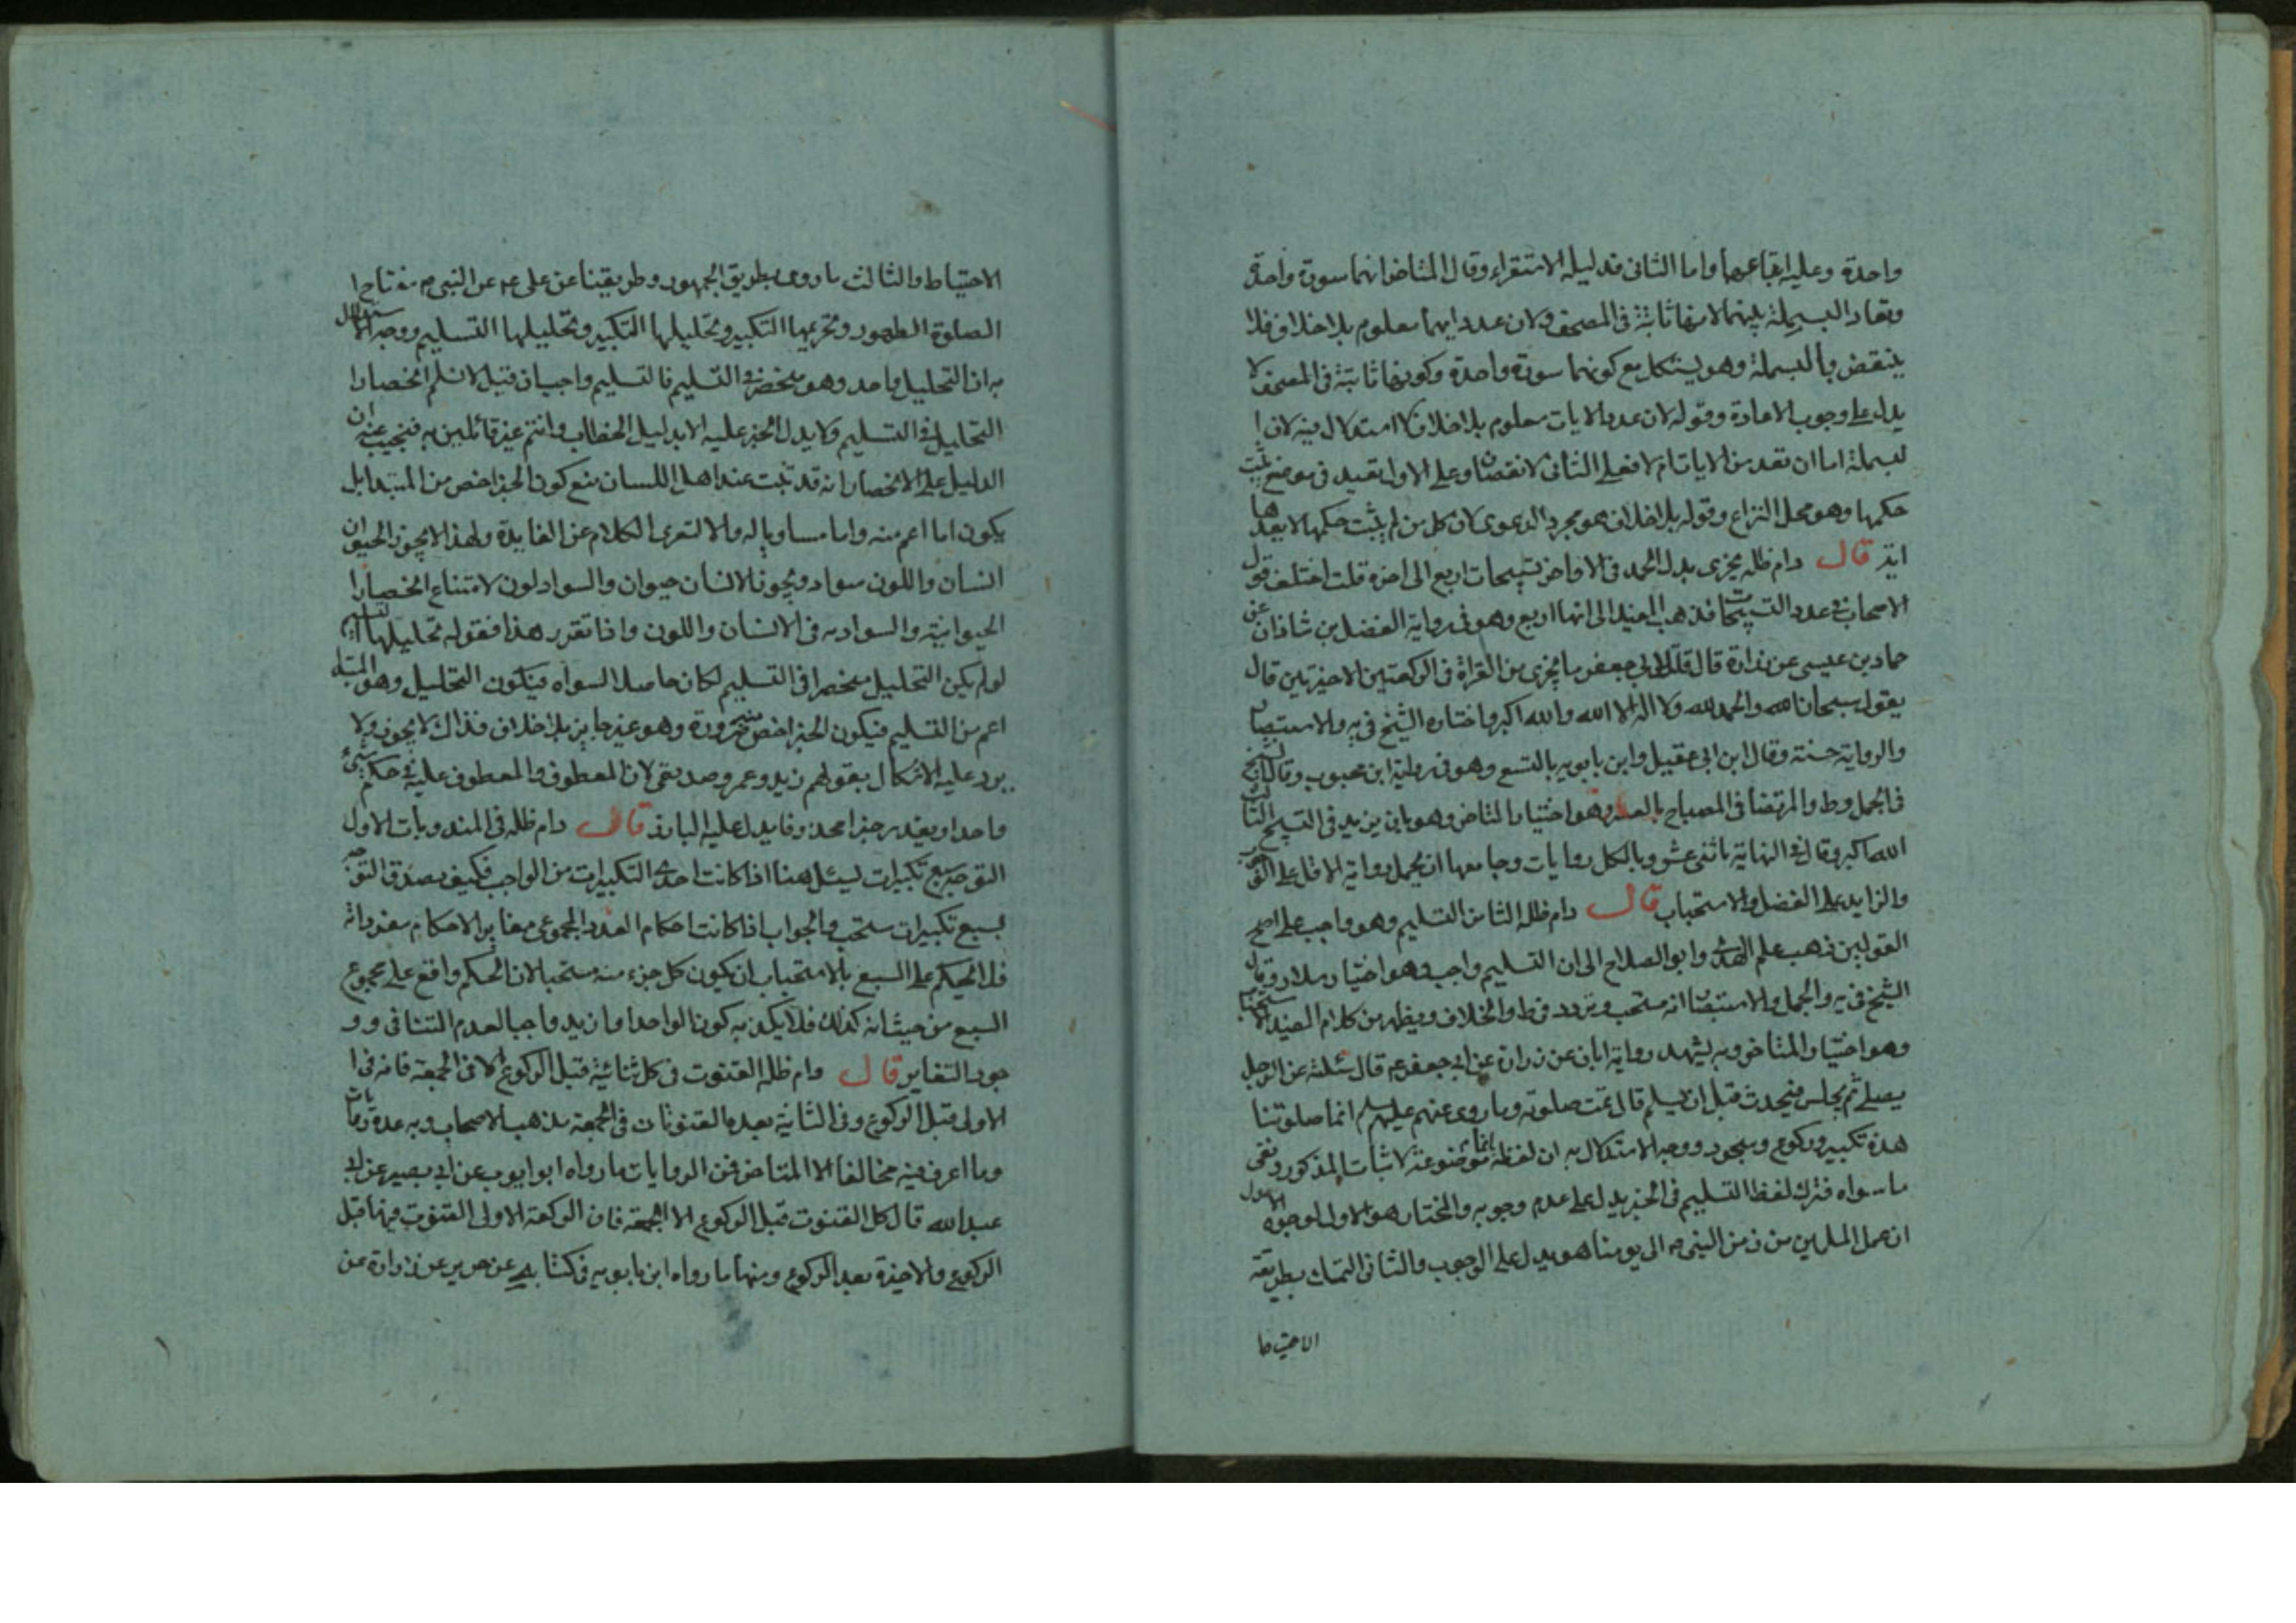 واحدة وعليه اتباعهما واما الثانى فدليله الاستقراء وقال المتاخر انهما سورة واحدة
وتعاد البسملة بينهما لانها ثابتة فى المصحف ولان عدد ايهما معلوم بلا خلاف فلا
ينتقض بالبسملة وهو يشكل مع كونهما سورة واحدة وكونها ثابتة فى المصحف لا
يدل على وجوب الاعادة وقوله لان عدد الايات معلوم بلا خلاف لا استدلال فيه لان ا
لبسملة اما ان تعد من الايات ام لا فعلى الثانى لا نقصان وعلى الاول يقيد فى موضع يثبت
حكمها وهو محل النزاع وقوله بلا خلاف هو مجرد الدعوى لان كل من لم يثبت حكمها لا يعدها
اية قال دام ظله يجزى بدل الحمد فى الاواخر تسبيحات اربع الى اخره قلت اختلف قول
الاصحاب فى عدد التسبيحات فذهب المفيد الى انها اربع وهو فى رواية الفضل بن شاذان عن
حماد بن عيسى عن زرارة قال قلت لابى جعفر ما يجزى من القراة فى الركعتين الاخيرتين قال
يقول سبحان الله والحمد لله ولا اله الا الله والله اكبر واختاره الشيخ فى يه والاستبصار
والرواية حسنة وقال ابن ابى عقيل وابن بابويه بالتسع وهو فى رواية ابن محبوب وقال الشيخ
فى الجمل وط والمرتضا فى المصباح بالعشر وهو اختيار المتاخر وهو بان يزيد فى التسبيح الثالث
الله اكبر وقال فى النهاية باثنى عشر وبالكل روايات وجامعها ان يحمل رواية الاقل على
والزايد على الفضل والاستحباب قال دام ظله الثامن التسليم وهو واجب على اصح
القولين ذهب علم الهدى وابو الصلاح الى ان التسليم واجب وهو اختيار سلار وقال
الشيخ فى يه والجمل والاستبصار انه مستحب وتردد فى ط والخلاف ويظهر من كلام المفيد الاستحباب
وهو اختيار المتاخر وبه يشهد رواية ابان عن زرارة عن ابى جعفر ع قال سئلته عن الرجل
يصلى ثم يجلس فيحدث قبل ان يسلم قال تمت صلوته وما روى عنهم عليهم السلم انما صلوتنا
هذه تكبير وركوع وسجود ووجه الاستدلال به ان لفظة انما موضوعة لاثبات المذكور ونفى
ما سواه فترك لفظ التسليم فى الخبر يدل على عدم وجوبه والمختار هو الاول لوجوه الاول
ان عمل المسلمين من زمن النبى ص الى يومنا هو يدل على الوجوب والثانى التمسك بطريقة
الاحتياط
الاحتياط والثالث ما روى بطريق الجمهور وطريقينا عن على ع عن النبى ص مفتاح ا
لصلوة الطهور وتحريمها التكبير وتحليلها التكبير وتحليلها التسليم ووجه الاستدلال
به ان التحليل واحد وهو منحصر فى التسليم فالتسليم واجب فان قيل لا نسلم انحصار ا
لتحليل فى التسليم ولا يدل الخبر عليه الا بدليل الخطاب وانتم غير قائلين به فنجيب عنه ان
الدليل على الانحصار انه قد ثبت عند اهل اللسان منع كون الخبر اخص من المبتدا بل
يكون اما اعم منه واما مساويا له والا لتعرى الكلام عن الفايدة ولهذا لا يجوز الحيوان
انسان واللون سواد ويجوز الانسان حيوان والسواد لون لامتناع انحصار ا
لحيوانية والسوادية فى الانسان واللون واذا تقرر هذا فقوله تحليلها التسليم
لو لم يكن التحليل منحصرا فى التسليم لكان حاصلا لسواه فيكون التحليل وهو المبتدا
اعم من التسليم فيكون الخبر اخص ضرورة وهو غير جايز بلا خلاف فذاك لا يجوز ولا
يرد عليه الاشكال بقولهم زيد وعمرو صديقى لان المعطوف والمعطوف عليه فى حكم شىء
واحد او يقدر خبرا محذوفا يدل عليه البارز قال دام ظله فى المندوبات الاول
التوجه بسبع تكبيرات ليسئل هنا اذا كانت احدى التكبيرات من الواجب فكيف يصدق التوجه
بسبع تكبيرات مستحب والجواب اذا كانت احكام العدد المجموعى مغاير الاحكام مفرداته
فلا الحكم على السبع بالاستحباب ان يكون كل جزء منه مستحبا لان الحكم واقع على مجموع
السبع من حيث انه كذلك فلا يكذبه كون الواحد او ازيد واجبا لعدم التنافى وو
جود التغاير قال دام ظله القنوت فى كل ثنائية قبل الركوع الا فى الجمعة فانه فى ا
لاولى قبل الركوع وفى الثانية بعده القنوتان فى الجمعة مذهب الاصحاب وبه عدة روايات
وما اعرف فيه مخالفا الا المتاخر فمن الروايات ما رواه ابو ايوب عن ابى بصير عن ابى
عبد الله قال كل القنوت قبل الركوع الا الجمعة فان الركعة الاولى القنوت فيها قبل
الركوع والاخيرة بعد الركوع ومنها ما رواه ابن بابويه فى كتابه عن حريز عن زرارة عن